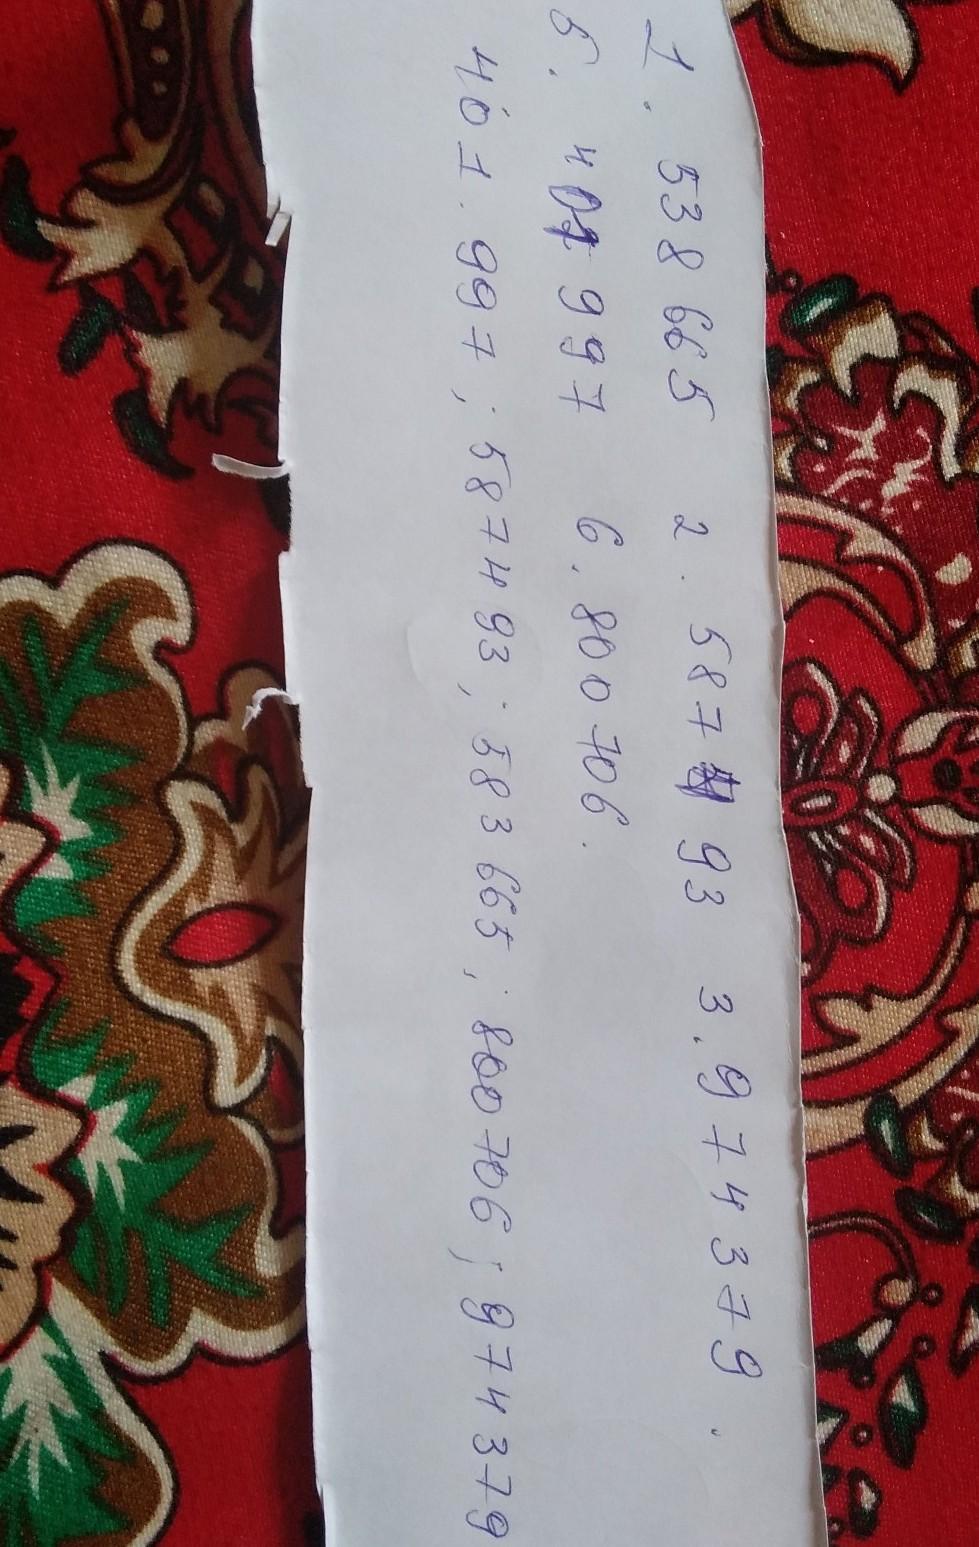 1. 538 665 2. 587 493 3. 974 379.
5. 401 997 6. 800 706.
401. 997; 587 493; 583 665; 800 706; 974 379